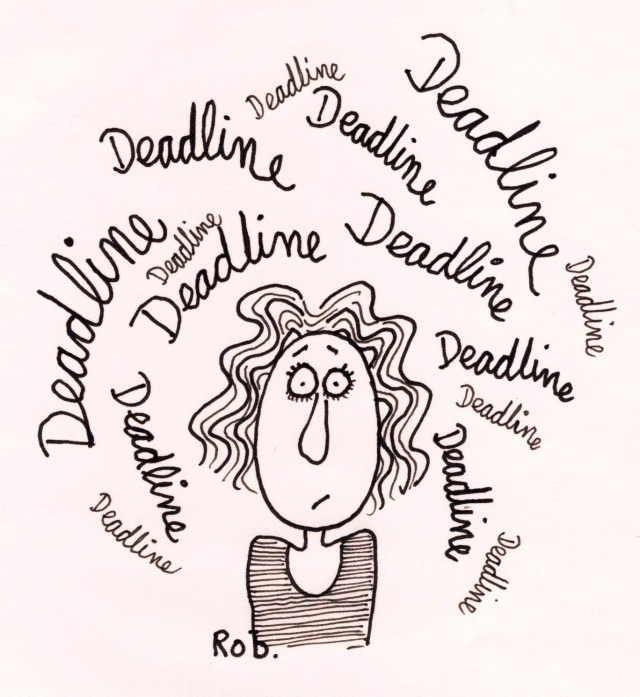 Deadline
Deadline
Deadline
Deadline
Deadline
Deadline
Deadline
Deadline
Deadline
Deadline
Deadline
Deadline
Deadline
Deadline
Deadline
Rob.